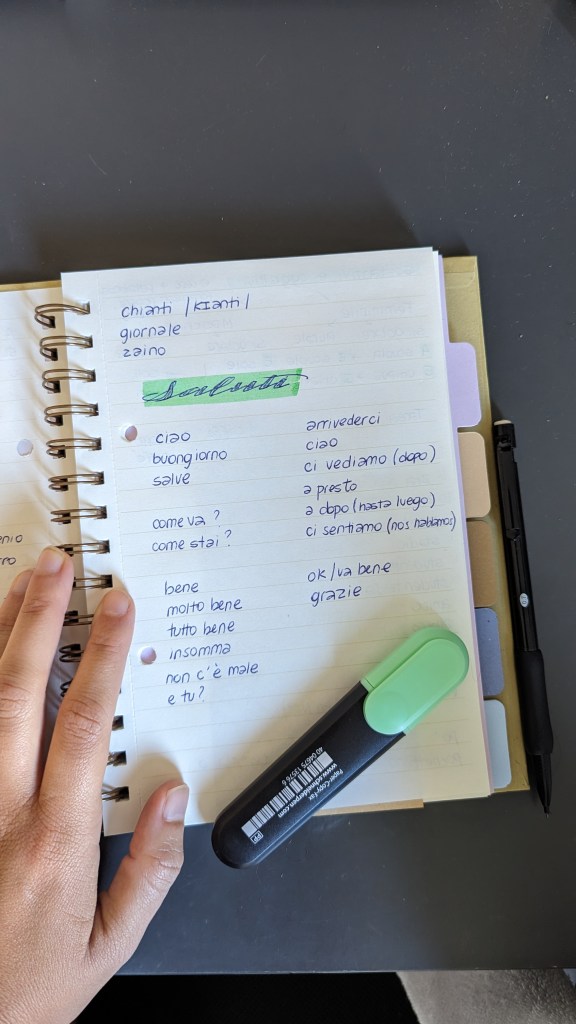 chianti /kianti/
giornale
zaino
ciao
buongiorno
salve
come va?
come stai?
bene
molto bene
tutto bene
insomma
non c'è male
e tu?
arrivederci
ciao
ci vediamo (dopo)
a presto
a dopo (hasta luego)
ci sentiamo (nos hablamos)
ok/va bene
grazie
Paper-Copy-Fax
www.schneiderpen.com